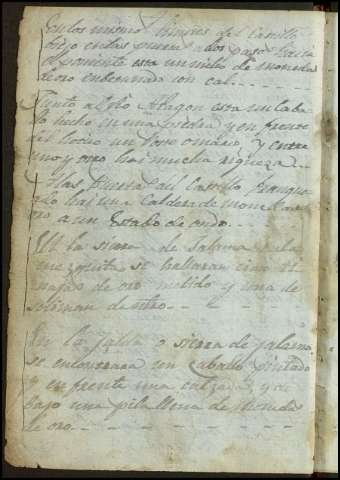 En los mismo
Viejo en las puem a dos pasos hacia
el poniente esta un nicho de monedas
de oro embetunado con cal
Junto al Rio Alagon esta un Caba
llo hecho en una piedra y en frente
del dicho un Toro o marrano, y entre
uno y otro hai mucha riqueza
A las Puertas del Castillo franque
ado hai una Caldera de monedas de
oro a un Estado de ondo
En la sierra de Jalama a la
mezquita se hallaran cinco ti
najas de oro molido y una de
soliman de
En la falda o sierra de jalama
se encontrara un Caballo pintado
y en frente una calzada, y de
bajo una pila llena de Monedas
de oro